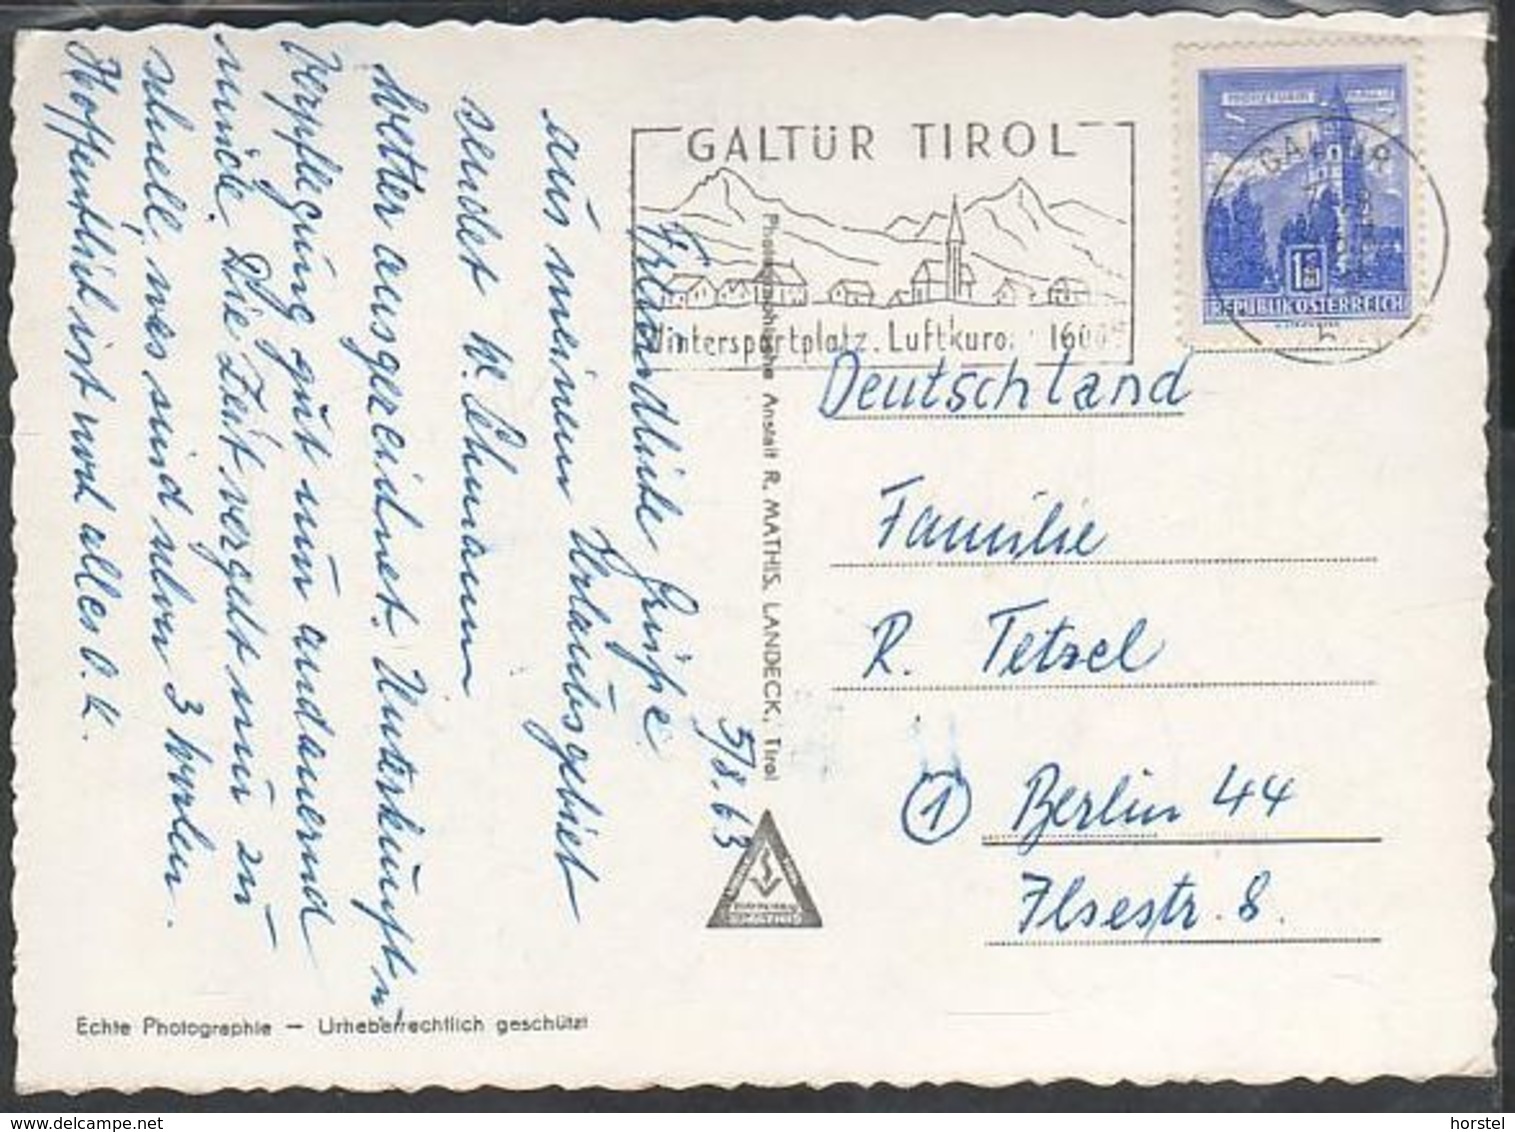 GALTÜR TIROL
Wintersportplatz. Luftkuror 1600
REPUBLIK ÖSTERREICH
Deutschland
Familie
R. Tetzel
① Berlin 44
Ilsestr. 8.
5/8. 63
Freundliche Grüße
aus meinem Urlaubsgebiet
sendet W. Lehmann
Wetter ausgezeichnet. Unterkunft u.
Verpflegung gut und andauernd
müde. Die Zeit vergeht nur zu
schnell, was sind schon 3 Wochen.
Hoffentlich ist noch alles O. K.
Photographische Anstalt R. MATHIS, LANDECK, Tirol
Echte Photographie — Urheberrechtlich geschützt
horstel @ www.delcampe.net